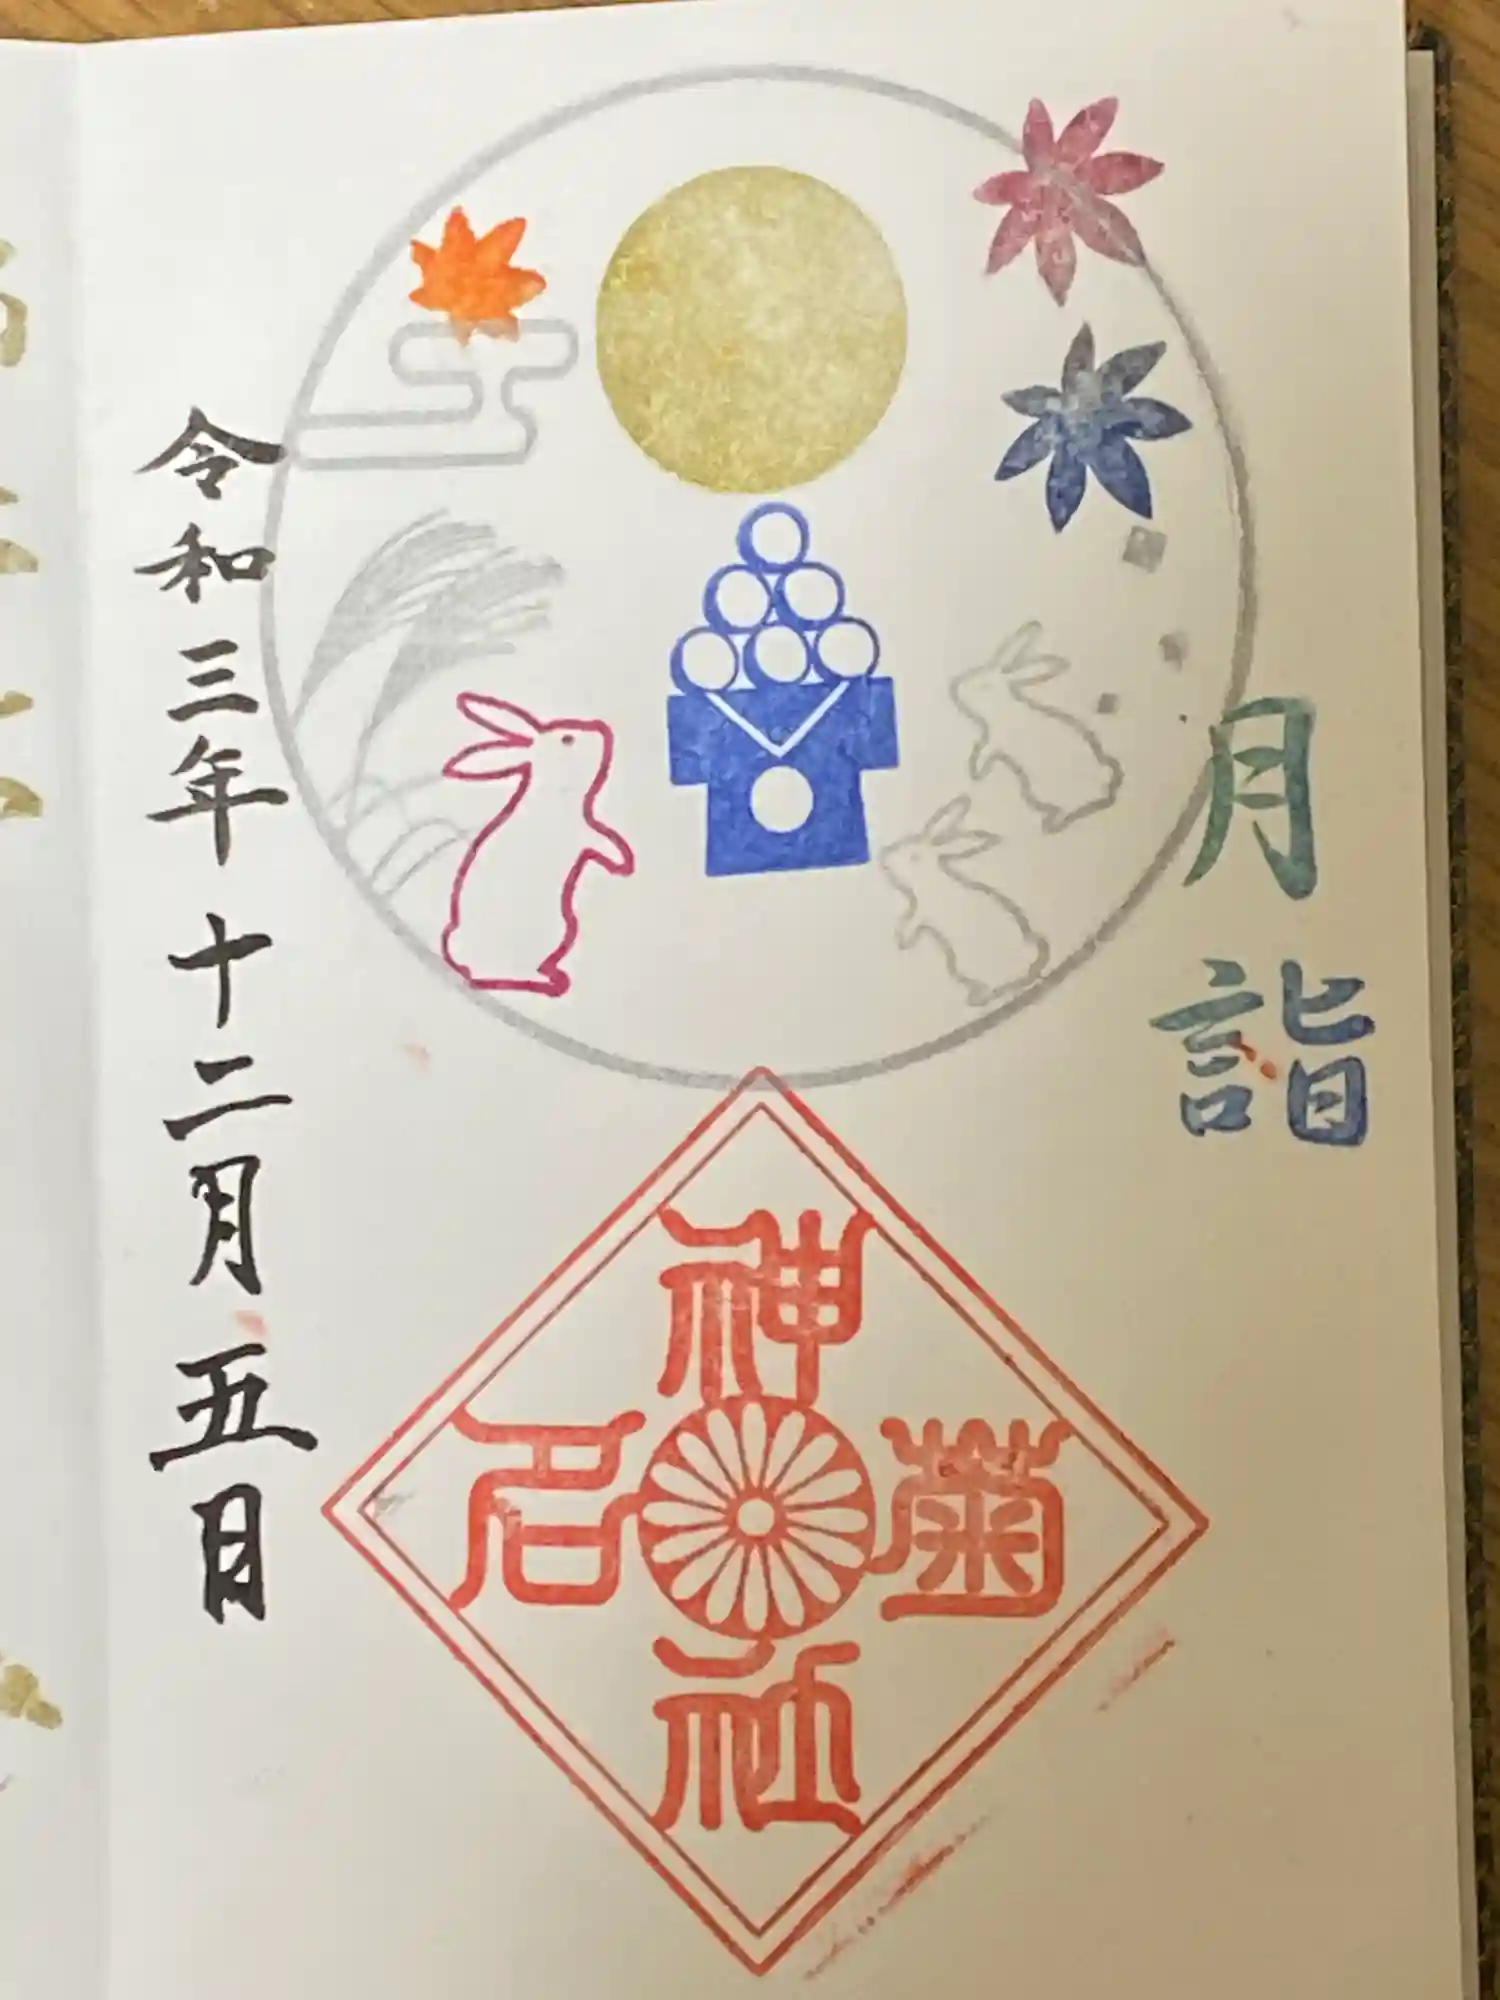 月詣
菊名神社
令和三年十二月五日